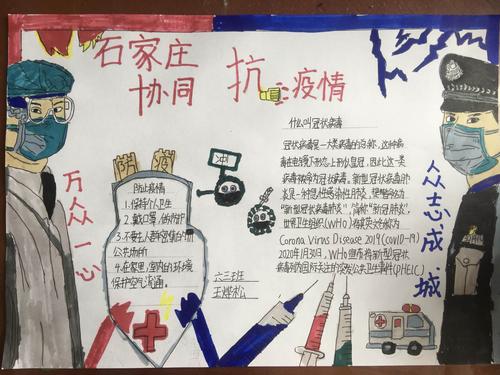 石家庄
协同 抗疫情
万众一心
防疫
防止疫情
1.保持个人卫生
3.不要去人群密集的
公共场所
4.在家里,室内的环境
保护空气流通。
冲
六三班
什么叫冠状病毒
冠状病毒是一大类病毒的总称,这种病
毒在电镜下形态上形似皇冠,因此这一类
病毒被称为冠状病毒。新型冠状病毒肺
炎是一种急性感染性肺炎,
"新型冠状病毒肺炎",简称"新冠肺炎",
世界卫生组织(WHO)将其英文名称为
Corona Virus Disease 2019(COVID-19)
2020年1月30日,WHO宣布将新型冠状
病毒列为国际关注的突发公共卫生事件(PHEIC)
众志成城